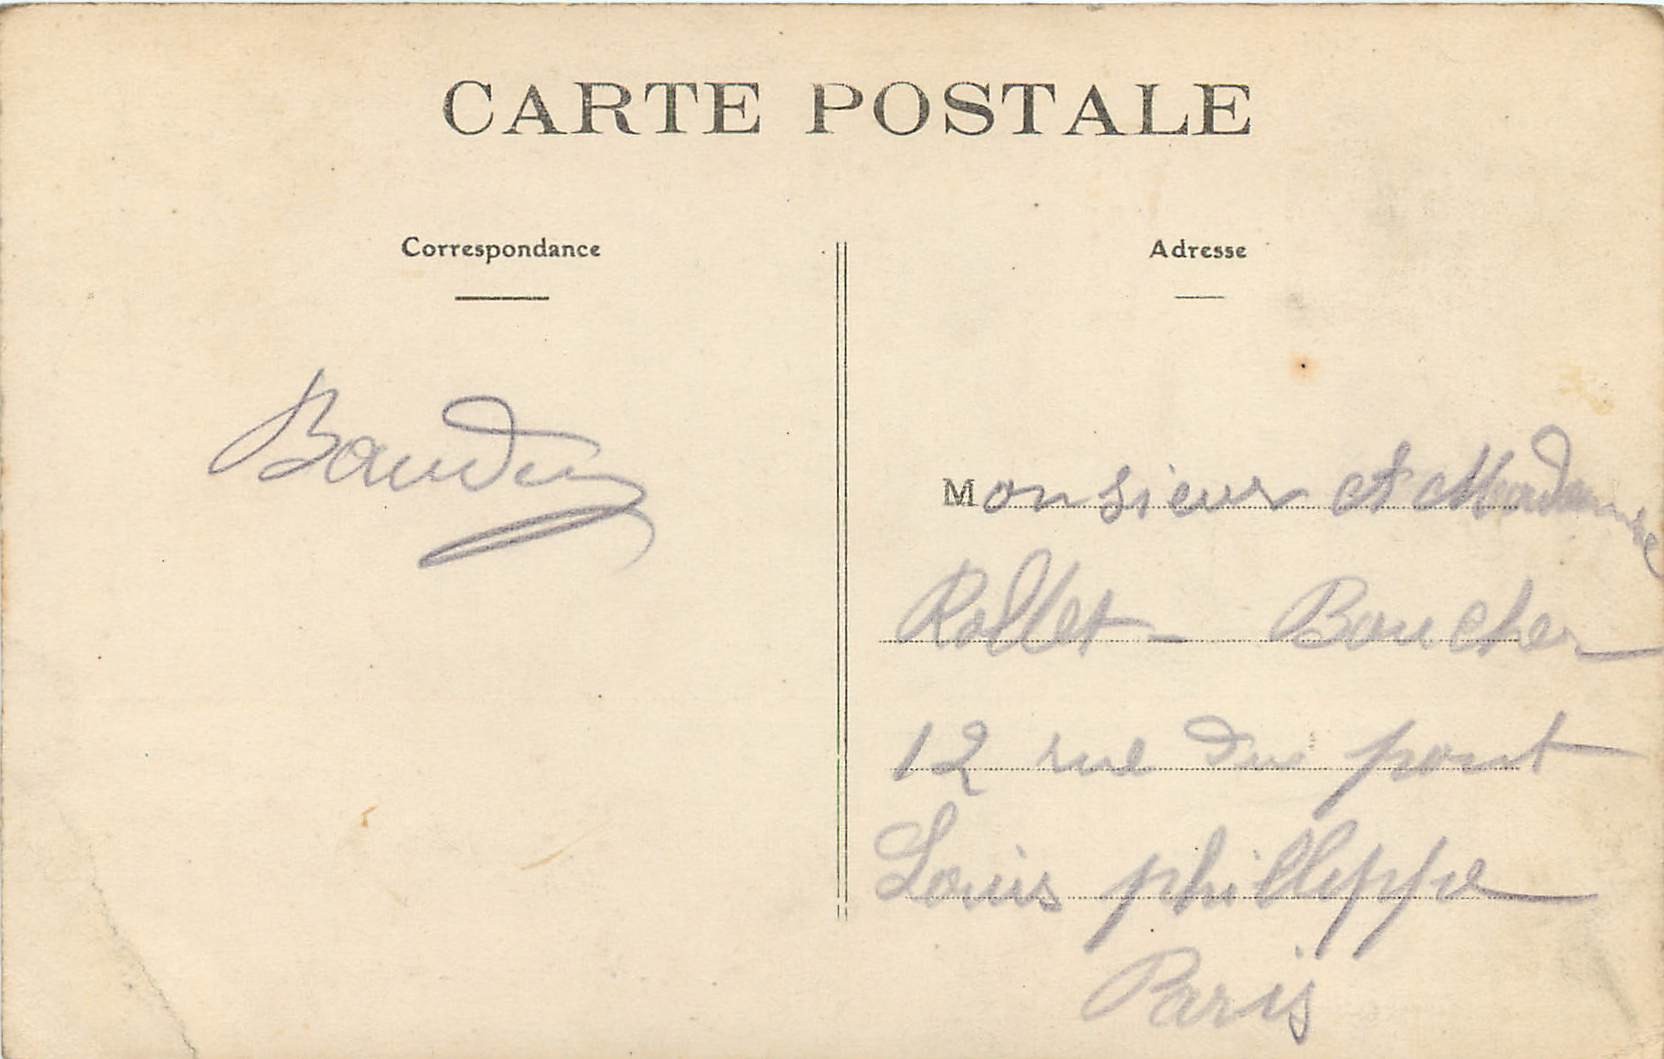 CARTE POSTALE
Correspondance
Adresse
Baudin
Monsieur et Madame
Rollet - Boucher
12 rue du pont
Louis phillippe
Paris